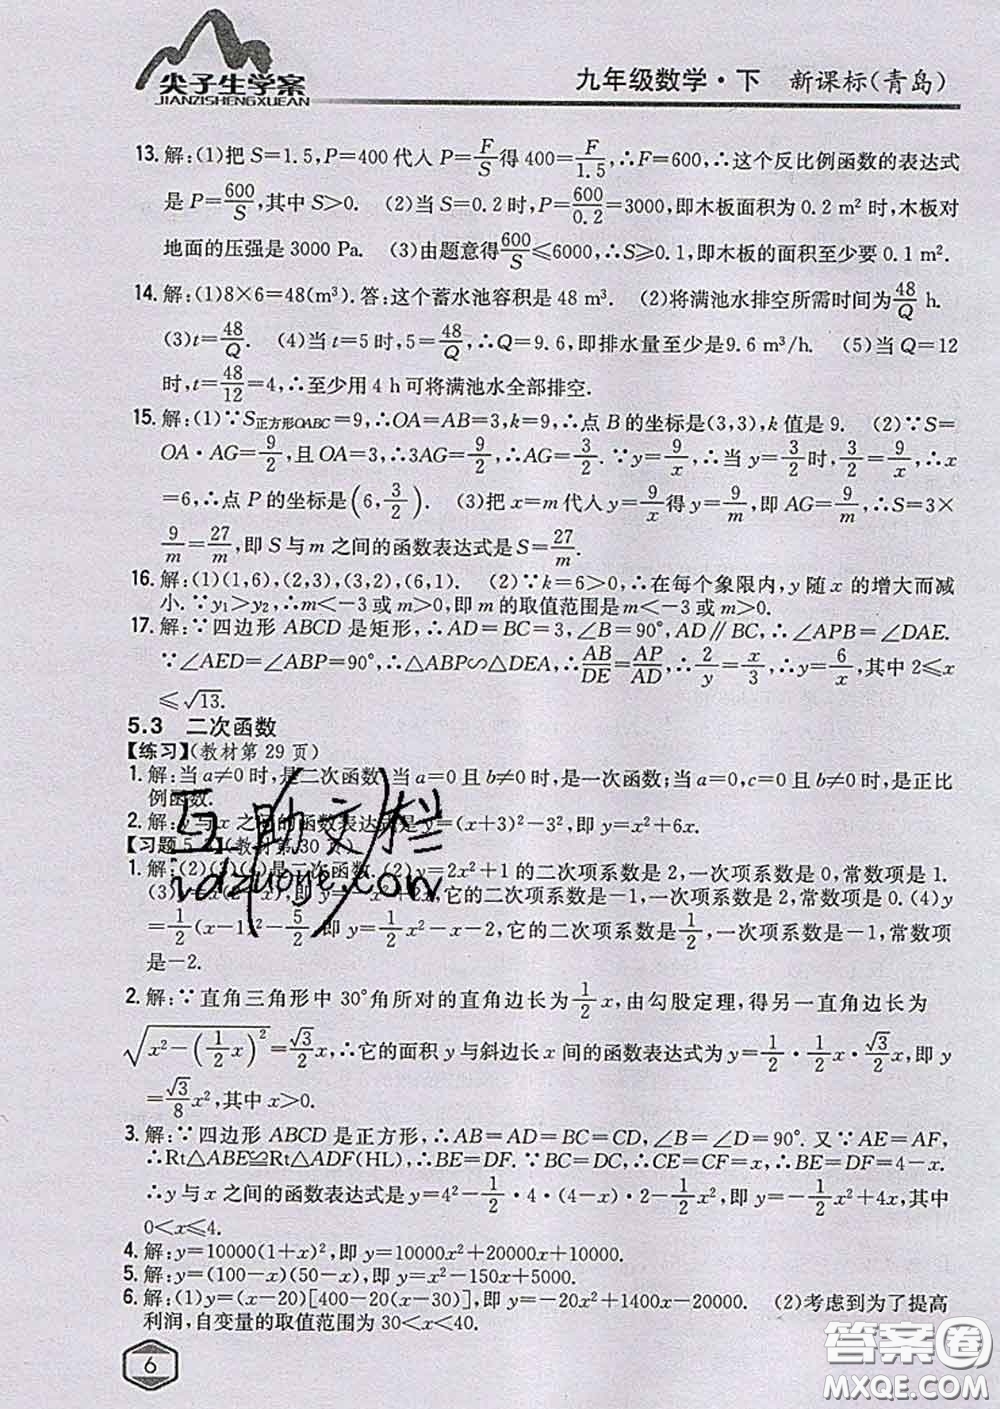 尖子生学案
JIANZISHENGXUEAN
九年级数学·下 新课标(青岛)
13. 解:(1)把 S=1.5,P=400 代入 P=F/S 得 400=F/1.5,∴F=600,∴这个反比例函数的表达式
是 P=600/S,其中 S>0. (2)当 S=0.2 时,P=600/0.2=3000,即木板面积为 0.2 m² 时,木板对
地面的压强是 3000 Pa. (3)由题意得600/S≤6000,∴S≥0.1,即木板的面积至少要 0.1 m².
14. 解:(1)8×6=48(m³). 答:这个蓄水池容积是 48 m³. (2)将满池水排空所需时间为48/Q h.
(3)t=48/Q. (4)当 t=5 时,5=48/Q,∴Q=9.6,即排水量至少是9.6 m³/h. (5)当 Q=12
时,t=48/12=4,∴至少用 4 h 可将满池水全部排空.
15. 解:(1)∵S正方形OABC=9,∴OA=AB=3,k=9,∴点 B 的坐标是(3,3),k 值是 9. (2)∵S=
OA·AG=9/2,且 OA=3,∴3AG=9/2,∴AG=3/2. ∵y=9/x,∴当 y=3/2时,3/2=9/x,∴x
=6,∴点 P 的坐标是(6,3/2). (3)把 x=m 代入 y=9/x得 y=9/m,即 AG=9/m,∴S=3×
9/m=27/m,即 S 与 m 之间的函数表达式是 S=27/m.
16. 解:(1)(1,6),(2,3),(3,2),(6,1). (2)∵k=6>0,∴在每个象限内,y 随 x 的增大而减
小. ∵y₁>y₂,∴m<-3 或 m>0,即 m 的取值范围是 m<-3 或 m>0.
17. 解:∵四边形 ABCD 是矩形,∴AD=BC=3,∠B=90°,AD∥BC,∴∠APB=∠DAE.
∵∠AED=∠ABP=90°,∴△ABP∽△DEA,∴AB/DE=AP/AD,∴2/y=x/3,∴y=6/x,其中 2≤x
≤√13.
5.3 二次函数
【练习】(教材第 29 页)
1. 解:当 a≠0 时,是二次函数;当 a=0 且 b≠0 时,是一次函数;当 a=0,c=0 且 b≠0 时,是正比
例函数.
2. 解:y 与 x 之间的函数表达式是 y=(x+3)²-3²,即 y=x²+6x.
互助文栏
【习题 5.】(教材第 30 页)
1. 解:(2)(3)(4)是二次函数. (2)y=2x²+1 的二次项系数是 2,一次项系数是 0,常数项是 1.
idzuoye.com
(3) y=-x²+x,它的二次项系数是-1,一次项系数是 1,常数项是 0. (4)y
=1/2(x-1)²-5/2,即 y=1/2x²-x-2,它的二次项系数是1/2,一次项系数是-1,常数项
是-2.
2. 解:∵直角三角形中 30°角所对的直角边长为1/2x,由勾股定理,得另一直角边长为
√(x²-(1/2x)²)=√3/2x,∴它的面积 y 与斜边长 x 间的函数表达式为 y=1/2·1/2x·√3/2x,即 y=
√3/8x²,其中 x>0.
3. 解:∵四边形 ABCD 是正方形,∴AB=AD=BC=CD,∠B=∠D=90°. 又∵AE=AF,
∴Rt△ABE≌Rt△ADF(HL),∴BE=DF. ∵BC=DC,∴CE=CF=x,∴BE=DF=4-x.
∴y 与 x 之间的函数表达式是 y=4²-1/2·4·(4-x)·2-1/2x²,即 y=-1/2x²+4x,其中
0<x≤4.
4. 解:y=10000(1+x)²,即 y=10000x²+20000x+10000.
5. 解:y=(100-x)(50-x),即 y=x²-150x+5000.
6. 解:(1)y=(x-20)[400-20(x-30)],即 y=-20x²+1400x-20000. (2)考虑到为了提高
利润,自变量的取值范围为 30<x<40.
6
答案圈
MXQE.COM